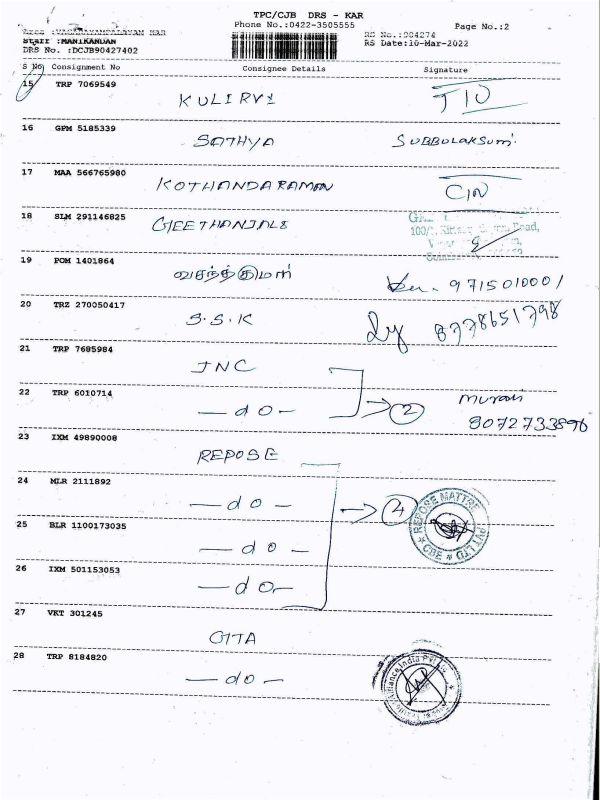 TPC/CJB DRS - KAR
Phone No.:0422-3505555 Page No.:2
RS No.:904274
Staff :MANIKANDAN RS Date:10-Mar-2022
DRS No. :DCJB90427402
S No Consignment No Consignee Details Signature
15 TRP 7069549 KULIRVI
16 GPM 5185339 SATHYA SUBBULAKSUMI
17 MAA 566765980 KOTHANDARAMAN
18 SLM 291146825 GEETHANJALI
19 POM 1401864 9715010001
20 TRZ 270050417 S.S.K 8778651798
21 TRP 7685984 JNC
22 TRP 6010714 - do - 2 Murali
8072733896
23 IXM 49890008 REPOSE
24 MLR 2111892 - do - 4 REPOSE MATTRE PVT LTD CBE
25 BLR 1100173035 - do -
26 IXM 501153053 - do -
27 VKT 301245
28 TRP 8184820 - do - Alliance India Pvt